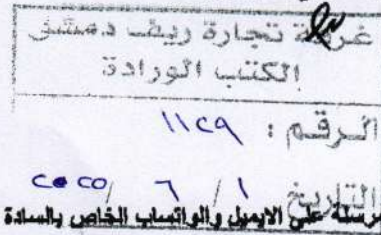 غرفة تجارة ريف دمشق
الكتب الورادة
الرقم : ١١٢٩
التاريخ ١ / ٦ / ٢٠٢٥
مرسلة على الايميل والواتساب الخاص بالسادة